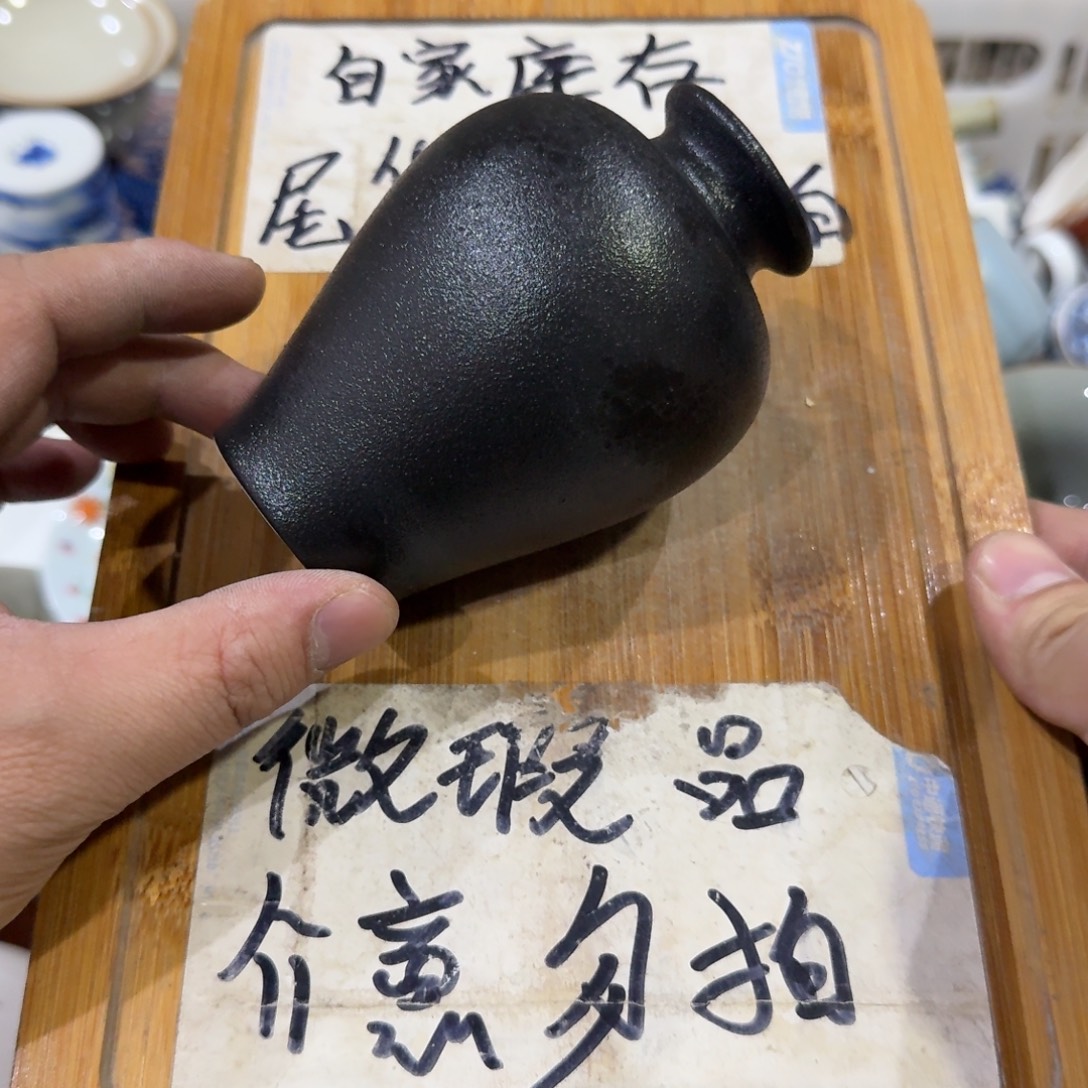 自家库存
尾
微瑕品
介惠勿拍